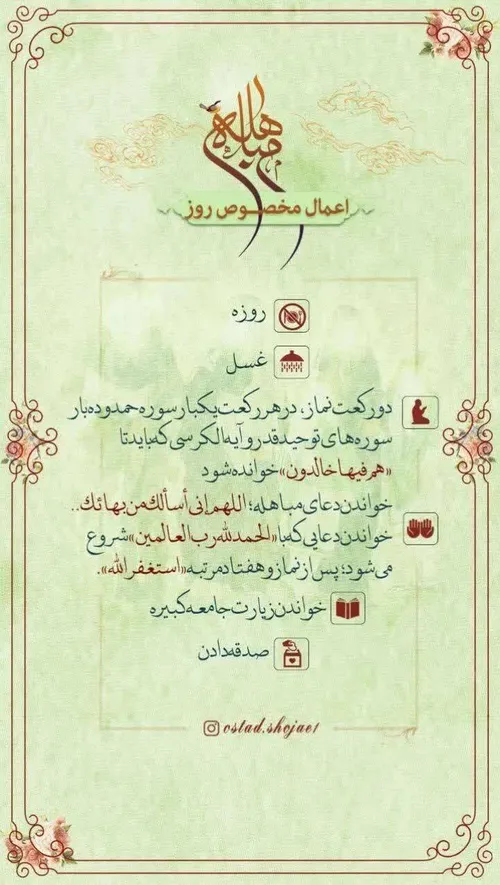 مباهله
اعمال مخصوص روز
روزه
غسل
دو رکعت نماز، در هر رکعت یکبار سوره حمد و ده بار
سوره‌های توحید قدر و آیه الکرسی که باید تا
«هم فیها خالدون» خوانده شود
خواندن دعای مباهله؛ اللهم إنی أسألك من بهائك..
خواندن دعایی که با «الحمدلله رب العالمین» شروع
می‌شود؛ پس از نماز و هفتاد مرتبه «استغفرالله».
خواندن زیارت جامعه کبیره
صدقه دادن
ostad.shojae1